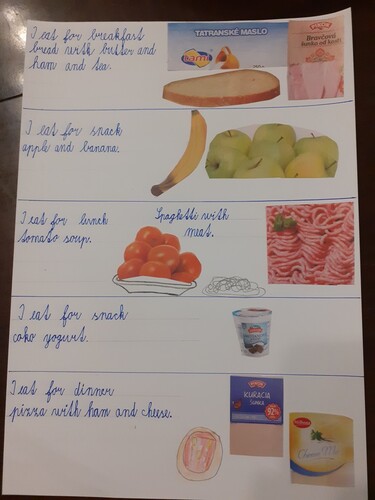 I eat for breakfast
bread with butter and
ham and tea.
TATRANSKÉ MASLO
Bravčová
šunka od kosti
I eat for snack
apple and banana.
I eat for lunch
tomato soup.
Spaghetti with
meat.
I eat for snack
coko yogurt.
I eat for dinner
pizza with ham and cheese.
KURACIA
ŠUNKA
92%